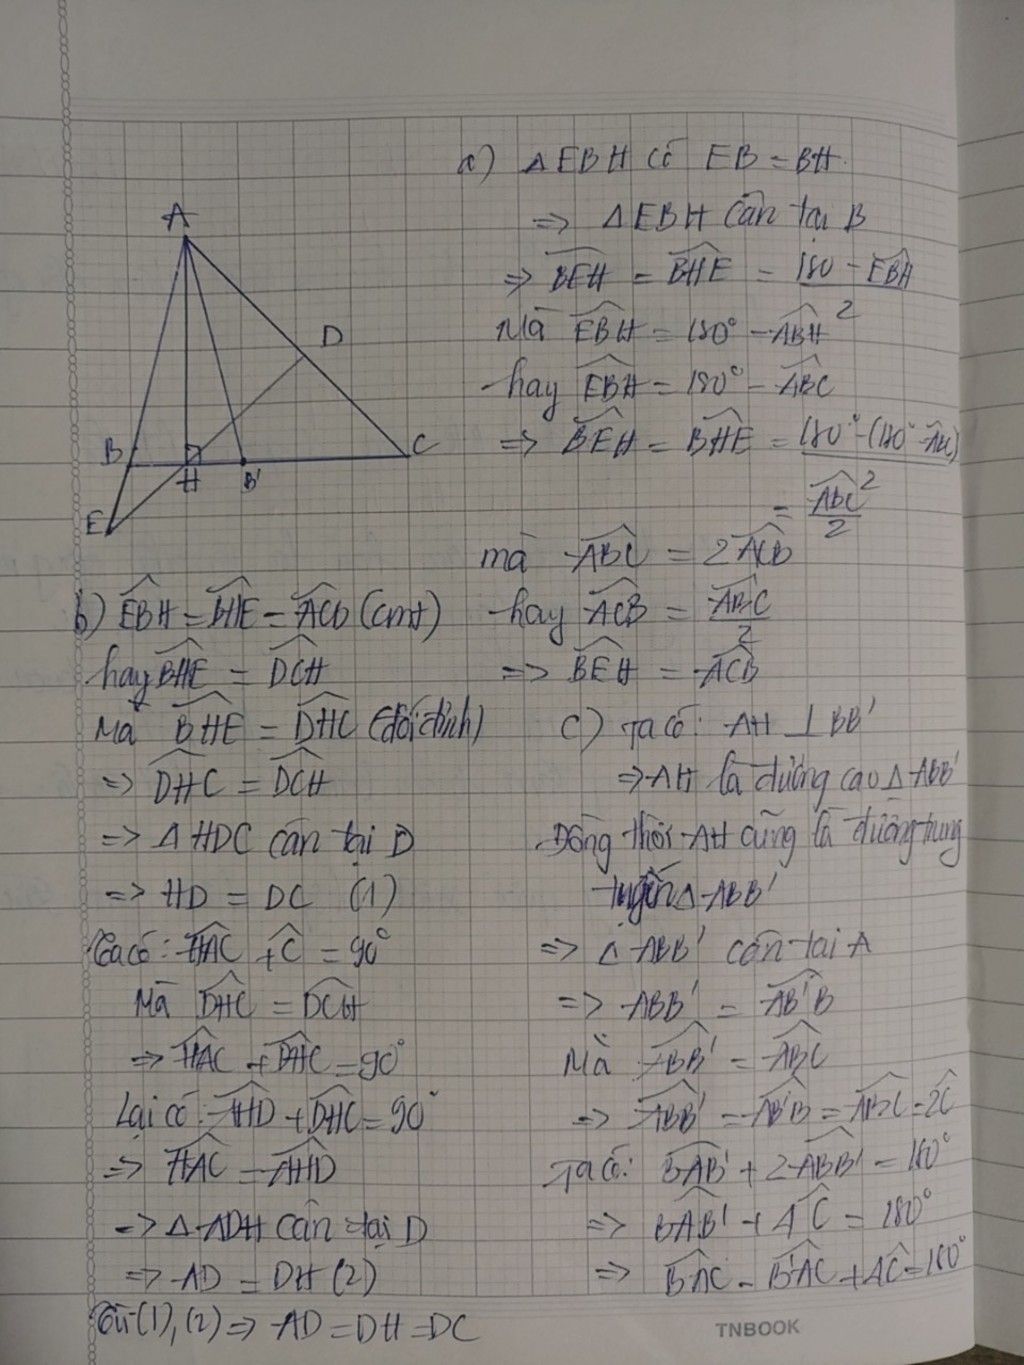 A
D
B
H
B'
C
E
a) ΔEBH có EB = BH
=> ΔEBH cân tại B
=> \widehat{BEH} = \widehat{BHE} = \frac{180 - \widehat{EBH}}{2}
Mà \widehat{EBH} = 180° - \widehat{ABH}
hay \widehat{EBH} = 180° - \widehat{ABC}
=> \widehat{BEH} = \widehat{BHE} = \frac{180° - (180° - \widehat{ABC})}{2}
= \frac{\widehat{ABC}}{2}
mà \widehat{ABC} = 2\widehat{ACB}
hay \widehat{ACB} = \frac{\widehat{ABC}}{2}
=> \widehat{BEH} = \widehat{ACB}
b) \widehat{EBH} = \widehat{BHE} = \widehat{ACD} (cmt)
hay \widehat{BHE} = \widehat{DCH}
Mà \widehat{BHE} = \widehat{DHC} (đối đỉnh)
=> \widehat{DHC} = \widehat{DCH}
=> ΔHDC cân tại D
=> HD = DC (1)
Ta có: \widehat{HAC} + \widehat{C} = 90°
Mà \widehat{DHC} = \widehat{DCH}
=> \widehat{HAC} + \widehat{DHC} = 90°
Lại có: \widehat{AHD} + \widehat{DHC} = 90°
=> \widehat{HAC} = \widehat{AHD}
=> ΔADH cân tại D
=> AD = DH (2)
Từ (1), (2) => AD = DH = DC
c) Ta có: AH ⊥ BB'
=> AH là đường cao ΔABB'
Đồng thời AH cũng là đường trung
tuyến ΔABB'
=> ΔABB' cân tại A
=> ABB' = \widehat{AB'B}
Mà \widehat{ABB'} = \widehat{ABC}
=> \widehat{ABB'} = \widehat{AB'B} = \widehat{ABC} = 2\widehat{C}
Ta có: \widehat{BAB'} + 2\widehat{ABB'} = 180°
=> \widehat{BAB'} + 4\widehat{C} = 180°
=> \widehat{BAC} - \widehat{B'AC} + 4\widehat{C} = 180°
TNBOOK